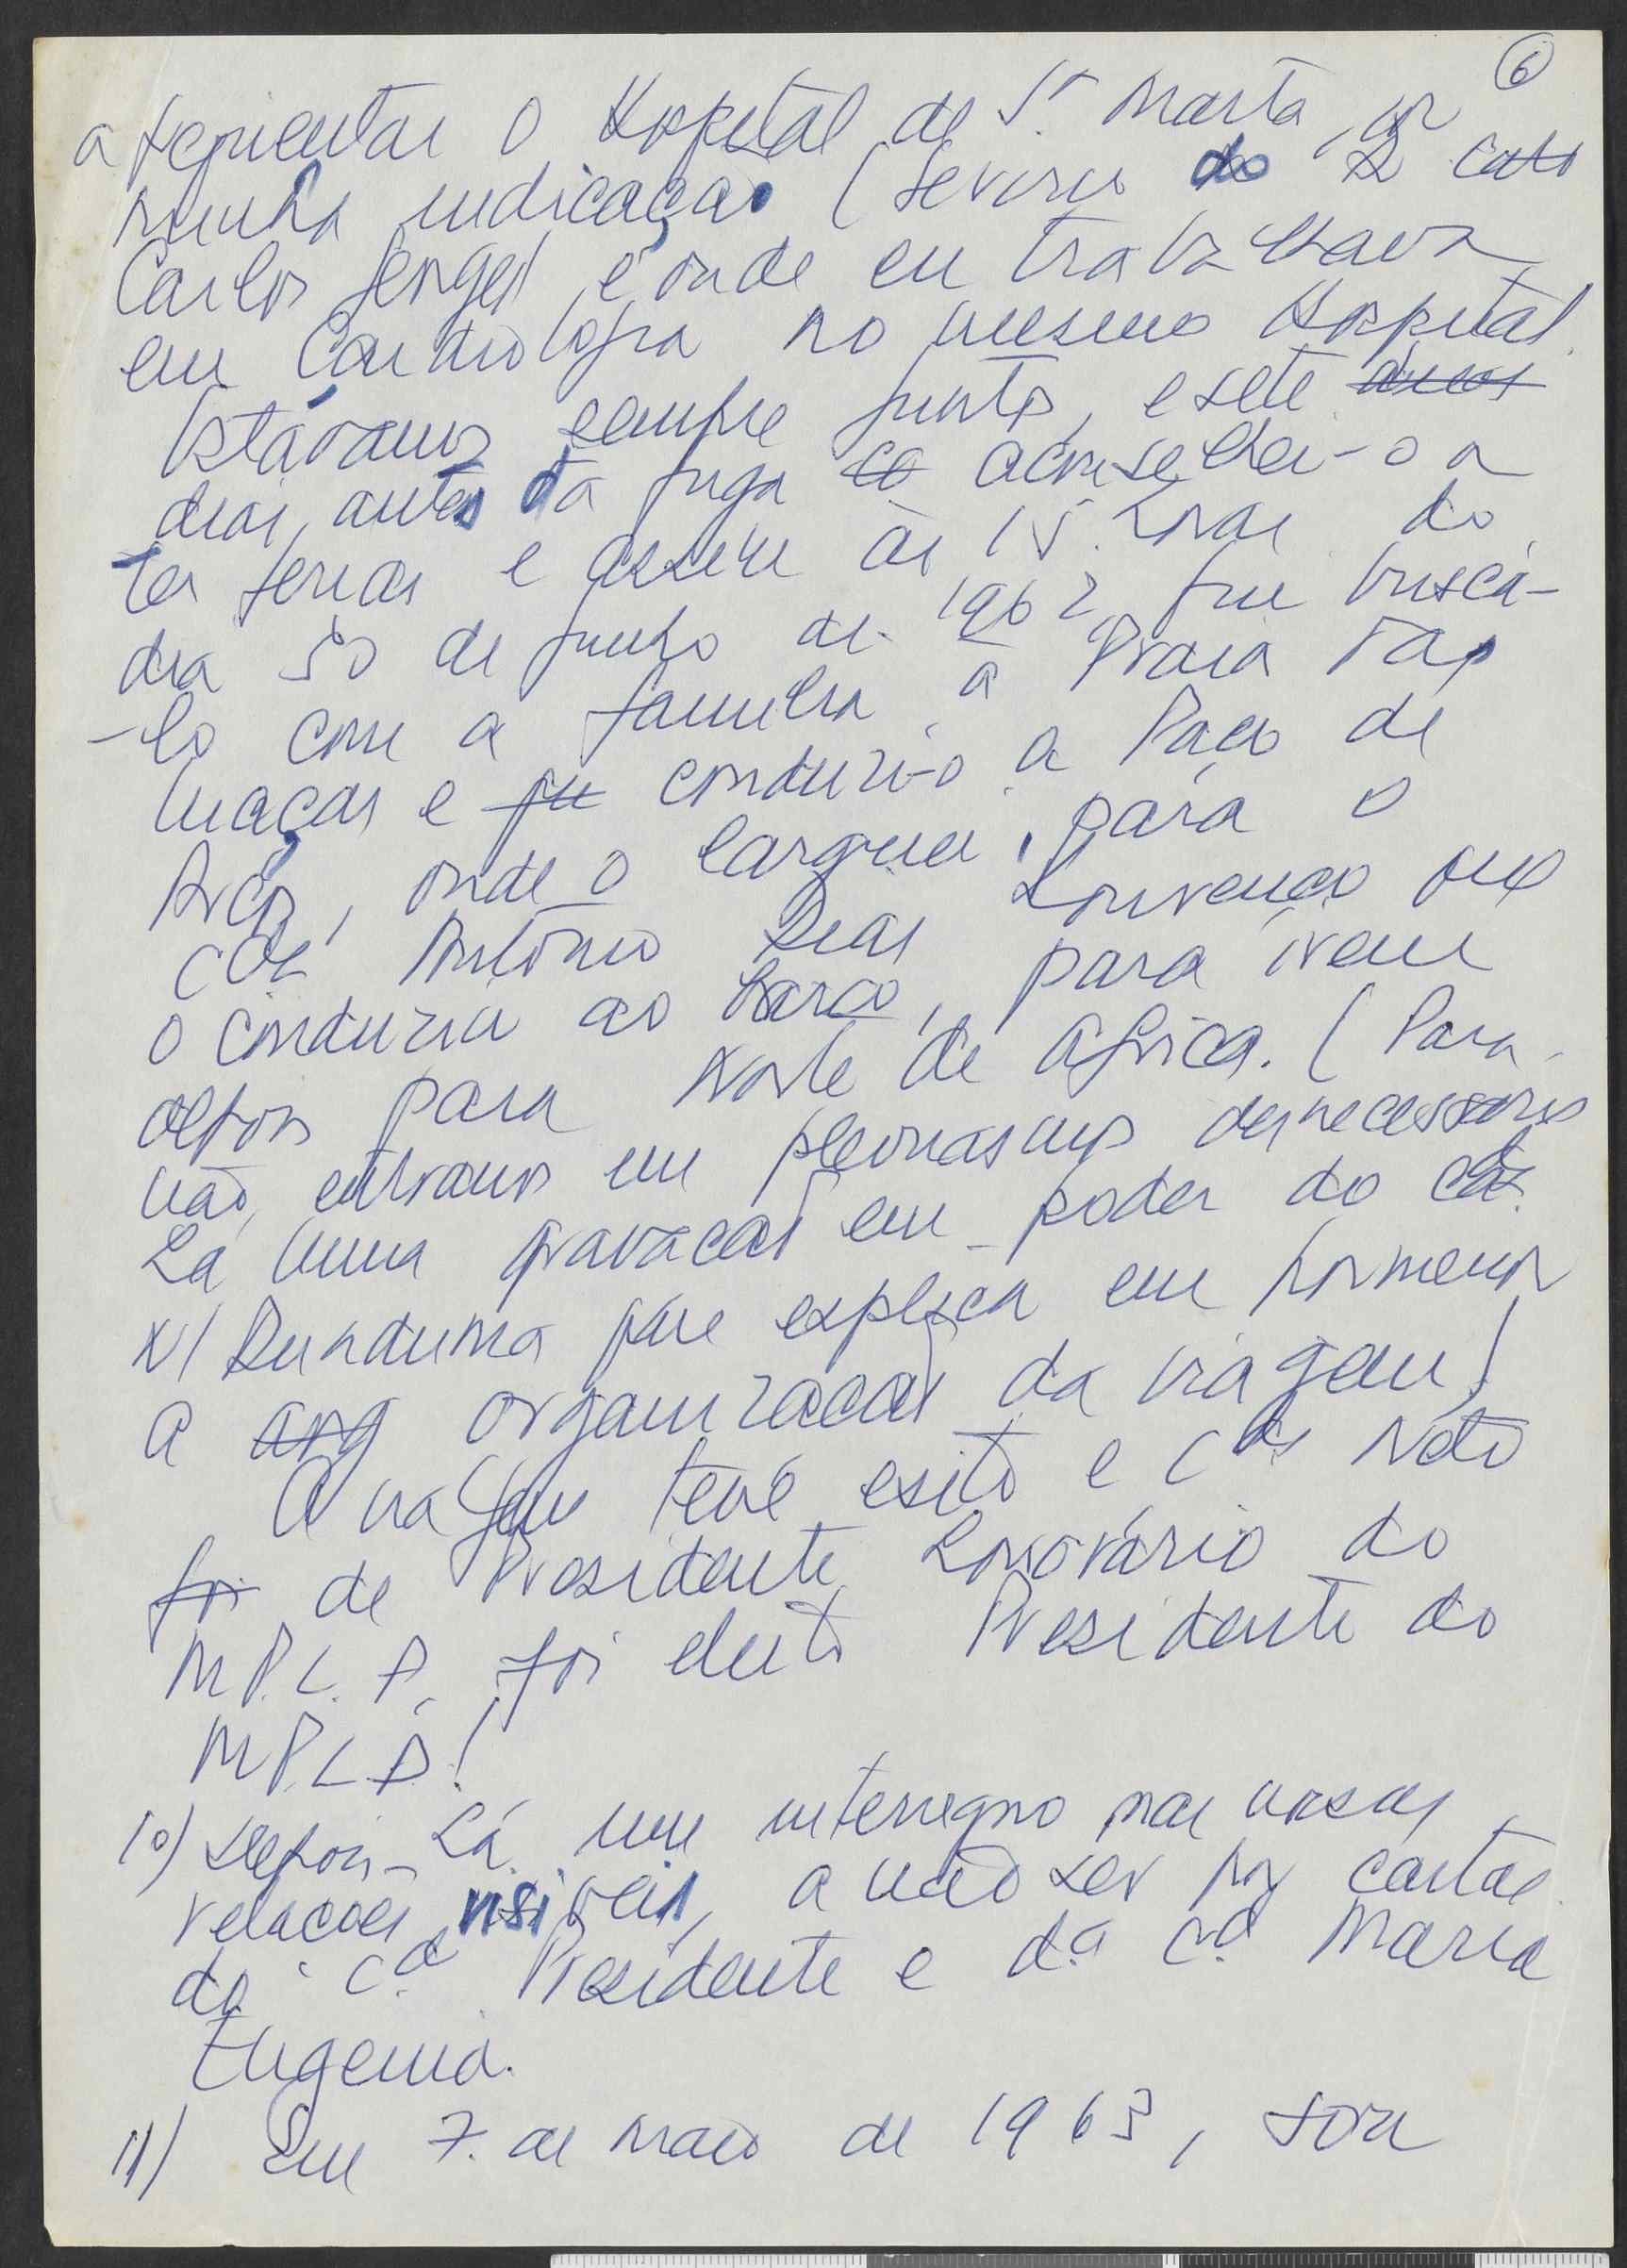 6
a frequentar o Hospital de St. Marta, por
minha indicação (serviço do D caso
Carlos Jorge) e onde eu trabalhava
em Cardiologia no mesmo Hospital.
Estávamos sempre juntos, e sete dias
dias, antes da fuga co aconselhei-o a
ter ferias e assim às 15. horas do
dia 30 de junho de 1962 fui buscá-
-lo com a familia, à Praia das
Maçãs e fu conduzi-o a Paço de
Arcos, onde o larguei, para o
cda António Dias Lourenço que
o conduziu ao barco, para irem
depois para Norte de Africa. (Para
não, entrarmos em pleonasmos desnecessarios
há uma gravação em poder do cda.
N/ Dunduma que explica em pormenor
a org organização da viagem)
A viagem teve exito e cda Neto
foi de Presidente honorário do
M.P.L.A. foi eleito Presidente do
M.P.L.A!
10) Depois há um interregno nas nossas
relações visiveis, a não ser por cartas
do cda. Presidente e da cda Maria
Eugenia.
11) Em 7. de Maio de 1963, sou